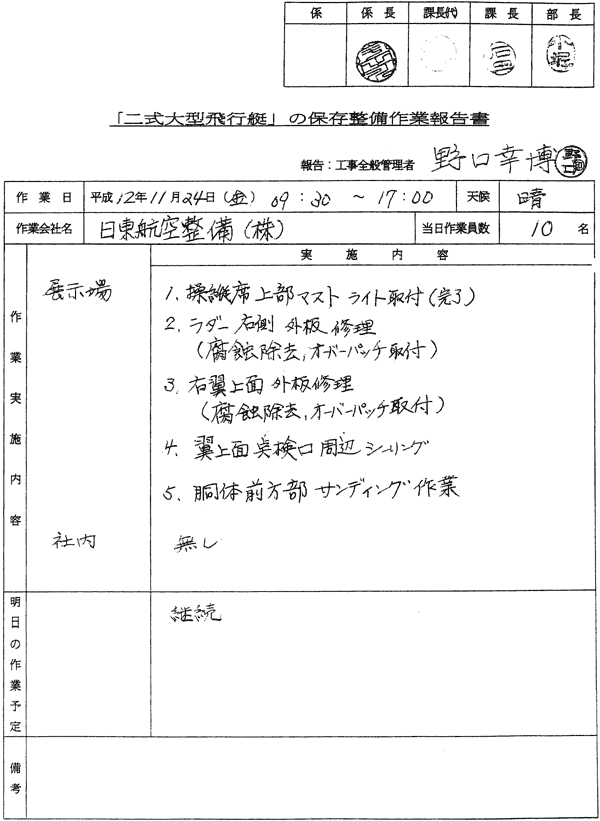 係 係長 課長(代) 課長 部長
小堀
「二式大型飛行艇」の保存整備作業報告書
報告：工事全般管理者 野口幸博 野口
作業日 平成12年11月24日(金) 09:30 ～ 17:00 天候 晴
作業会社名 日東航空整備(株) 当日作業員数 10 名
実施内容
作業実施内容
展示場
1. 操縦席上部マストライト取付(完了)
2. ラダー右側外板修理
(腐蝕除去,オーバーパッチ取付)
3. 右翼上面外板修理
(腐蝕除去,オーバーパッチ取付)
4. 翼上面点検口周辺シーリング
5. 胴体前方部サンディング作業
社内 無し
明日の作業予定 継続
備考